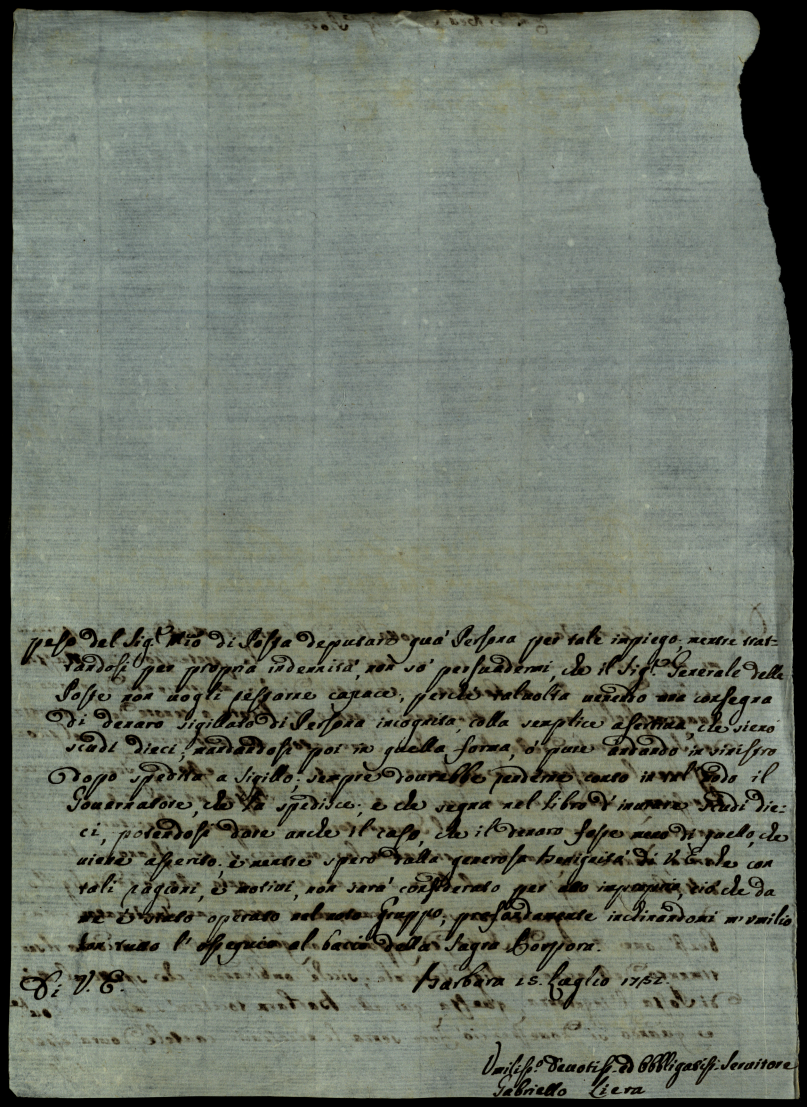 peso del Sig.r Mro di Posta deputare quà Persona per tale impiego; mentre trat-
tandosi per propria indennità, non sò persuadermi, che il Sig.r Generale delle
Poste non vogli restarne capace, perche talvolta venendo una consegna
di denaro sigillato di Persona incognita, colla semplice assertiva, che sieno
scudi dieci, mandandosi poi in quella forma, ò pure andando in sinistro
dopo spedita a sigillo; sempre dovrebbe renderne conto in tal modo il
Governatore, che la spedisce, e che segna nel libro d'invare scudi die-
ci, potendosi dare anche il caso, che il denaro fosse meno di quello, che
viene asserito; e mentre spero dalla generosa benignità di V. E. che con
tali ragioni, e motivi, non sarà considerato per improprio, ciò che da
me è stato operato nel noto Gruppo; profondamente inchinandomi m'umilio
con tutto l'ossequio al bacio della Sagra Porpora.
Di V. E. Barbara 15. Luglio 1751.
Umiliss.o Devotiss. ed Obbligatiss. Servitore
Gabriello Liera